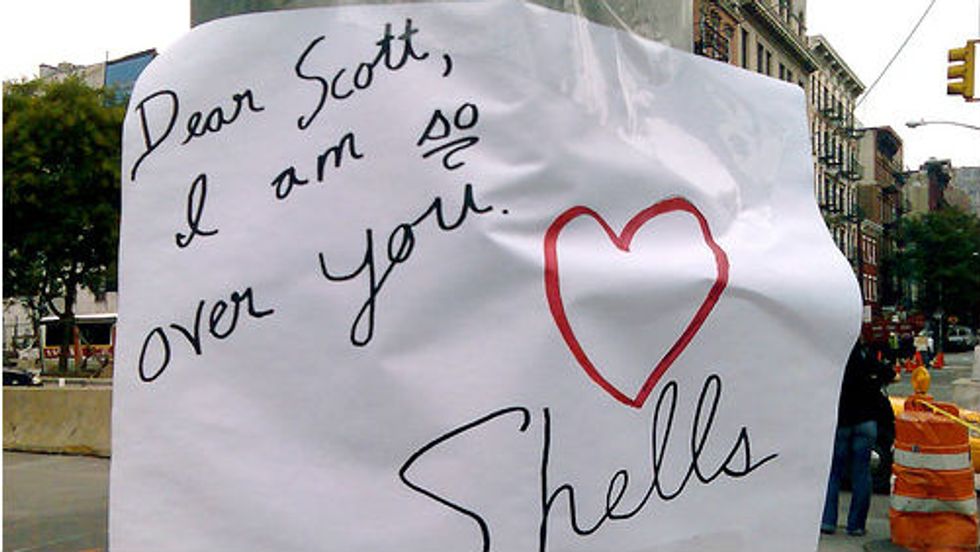 Dear Scott,
I am so
over you.
Shells